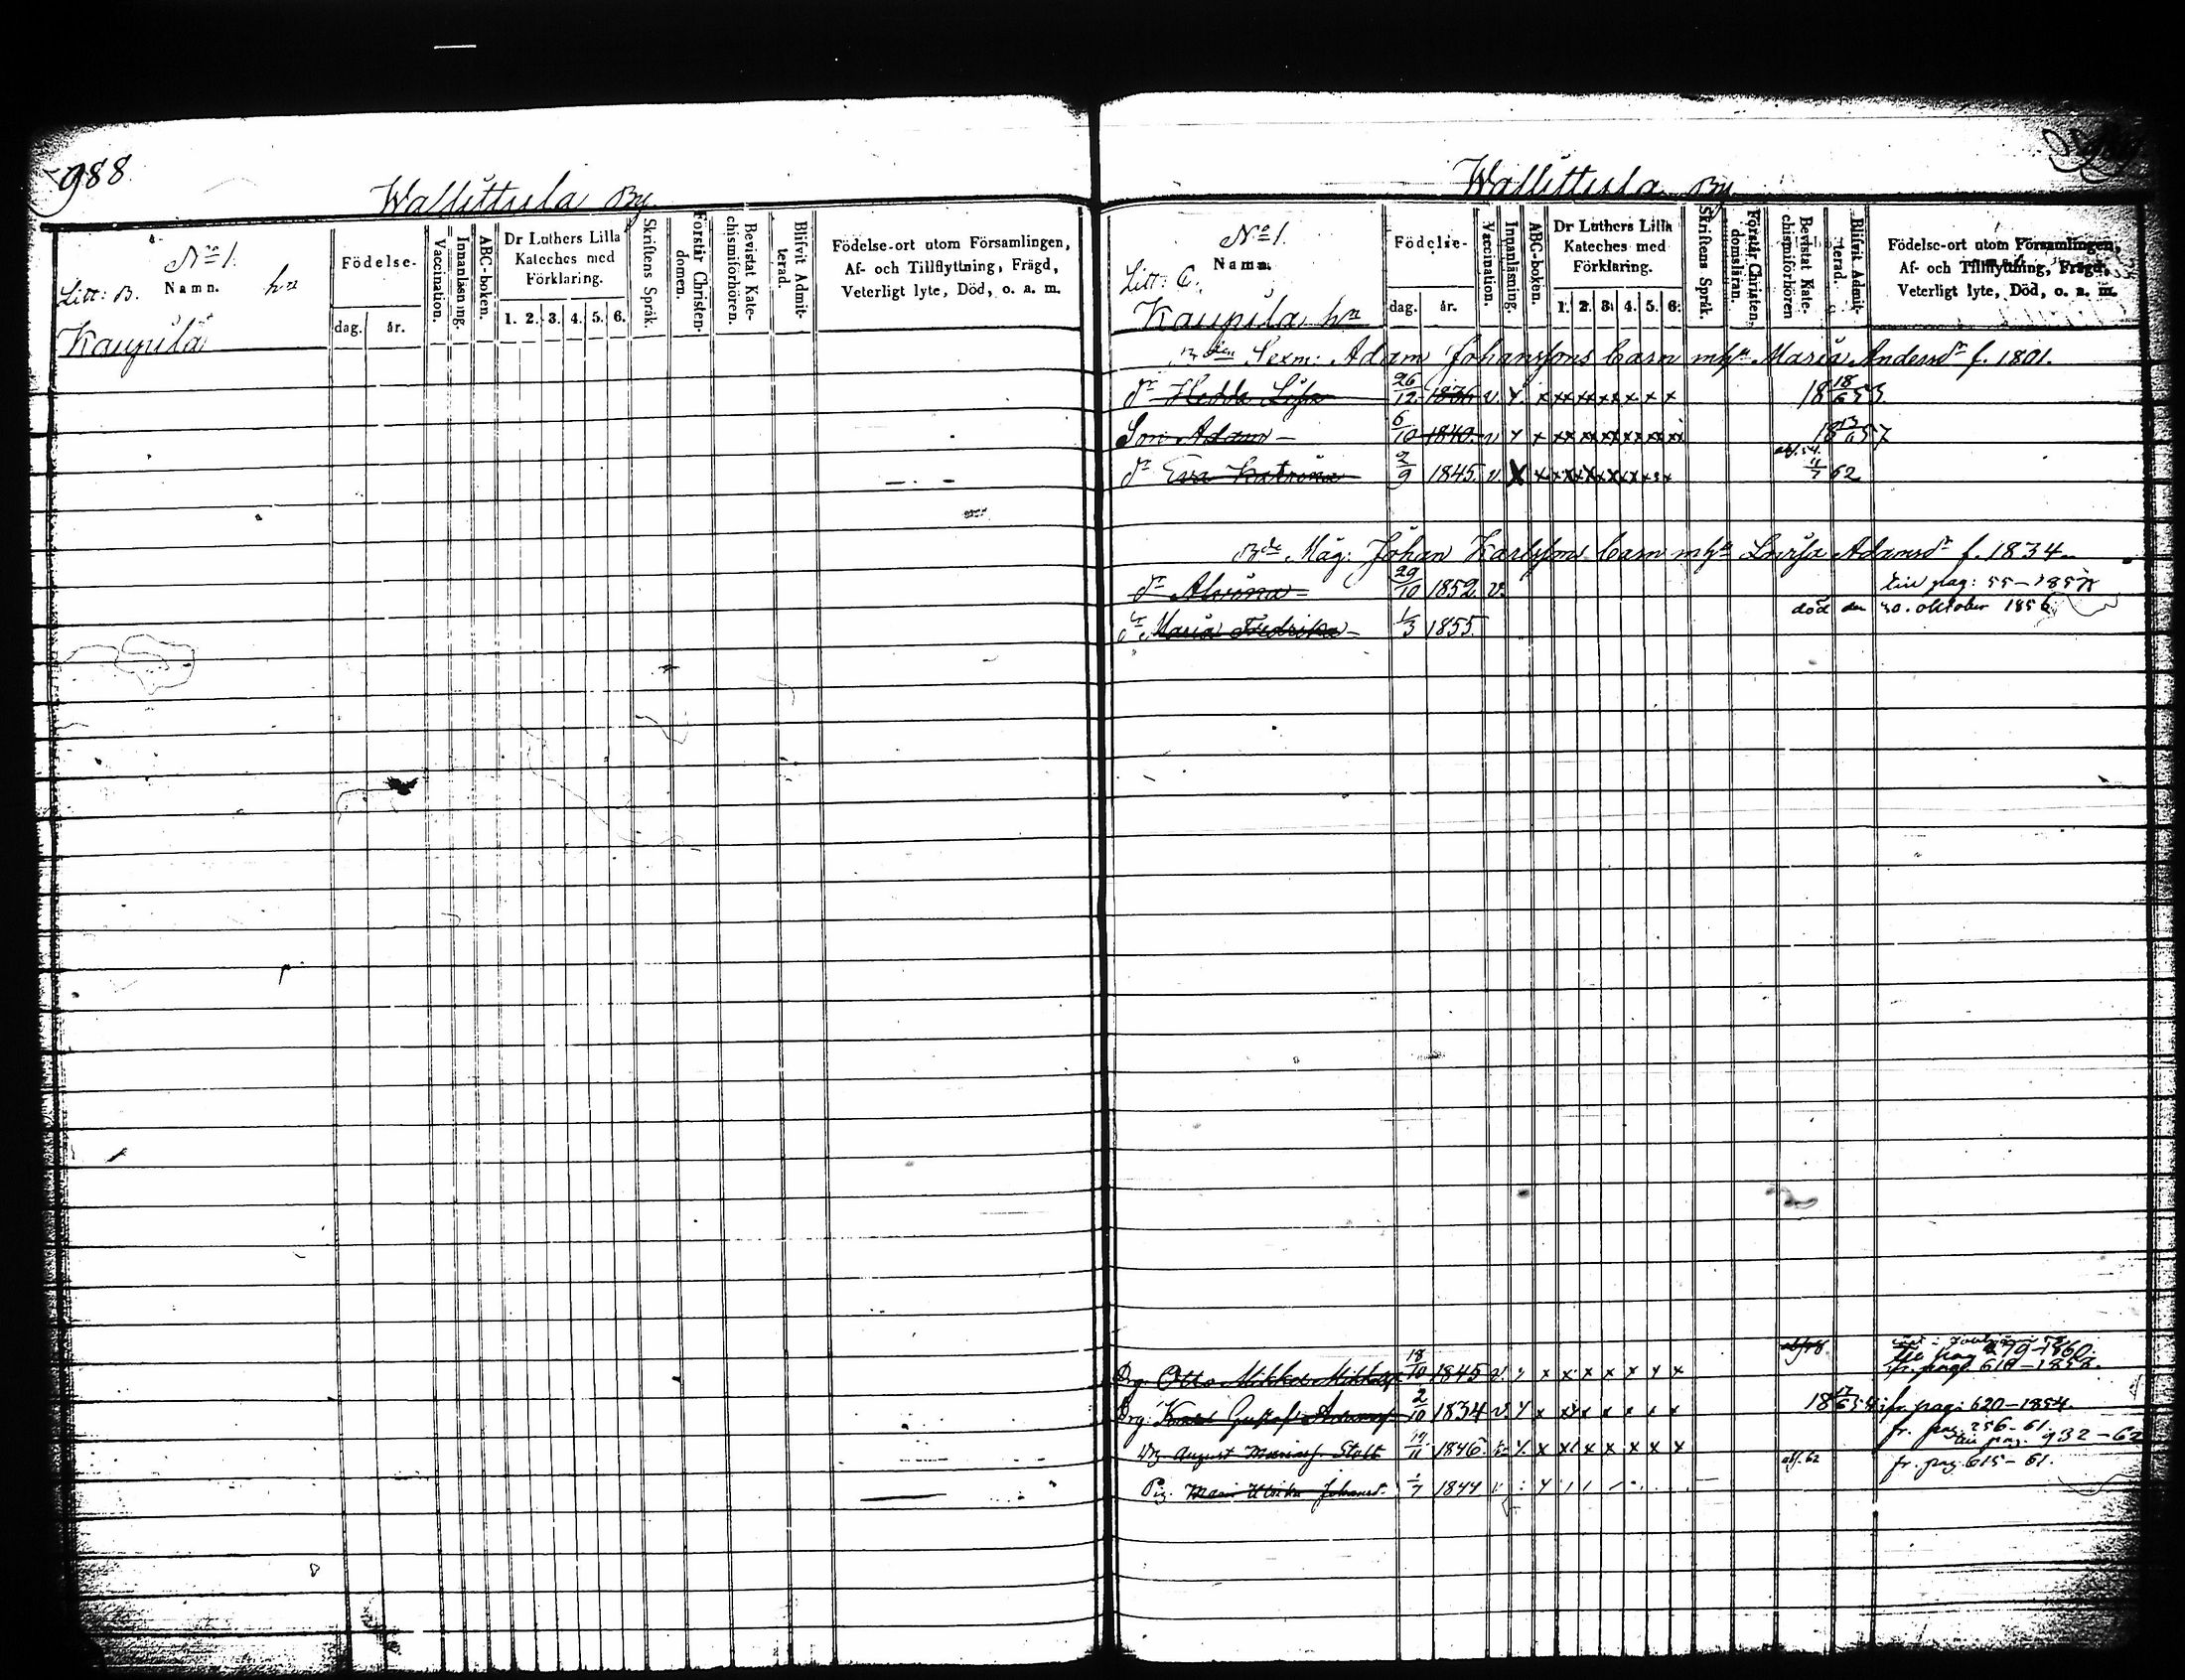 988
Wallittula By
No 1.
Litt: B. Namn. hn
Kaupila
Födelse-
dag. år.
Vaccination.
Innanläsning.
ABC-boken.
Dr Luthers Lilla
Kateches med
Förklaring.
1. 2. 3. 4. 5. 6.
Skriftens Språk.
Förstår Christen-
domen.
Bevistat Kate-
chismiförhören.
Blifvit Admit-
terad.
Födelse-ort utom Församlingen,
Af- och Tillflyttning, Frägd,
Veterligt lyte, Död, o. a. m.
Wallittula By
No 1.
Namn.
Litt: C.
Kaupila hn
Födelse-
dag. år.
Vaccination.
Innanläsning.
ABC-boken.
Dr Luthers Lilla
Kateches med
Förklaring.
1. 2. 3. 4. 5. 6.
Skriftens Språk.
Förstår Christen-
domsläran.
Bevistat Kate-
chismiförhören
Blifvit Admit-
terad.
Födelse-ort utom Församlingen,
Af- och Tillflyttning, Frägd,
Veterligt lyte, Död, o. a. m.
Sexm: Adam Johanssons barn m hu Maria Andersdr f. 1801.
dr Hedda Lisa 26/12 1836 v. Y. x xx xx xx x x x 18 18/6 53.
Son Adam 6/10 1840. v Y x xx xx xx xx xx xx 18 13/6 57
dr Eva Katrina 2/9 1845. v. X x 4/7 62
Bde Måg: Johan Karlssons barn m hu Lovisa Adamsdr f. 1834.
dr Alvina 29/10 1852 v. till pag: 55-1857
död den 30. oktober 1856
dr Maria Fredrika 1/3 1855.
till pag 479-1860.
fr. pag. 618-1858.
Drg. Otto Mikkel 18/10 1845 v. x x x x x x x
Drg: Karl Gustaf Adamss 2/10 1834 v. Y x x x x x x x fr. pag: 620-1854.
fr. pag. 256-61.
till pag. 932-62
Drg August Stolt 1846 x x x x x x
abs. 62 fr. pag 615-61.
Pig. Maria Ulrika Johansd. 1/7 1844